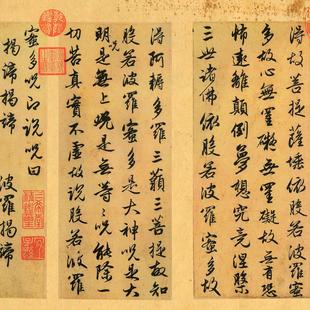 得故菩提薩埵依般若波羅蜜
多故心無罣礙無罣礙故無有恐
怖遠離顛倒夢想究竟涅槃
三世諸佛依般若波羅蜜多故
得阿耨多羅三藐三菩提故知
般若波羅蜜多是大神呪是大
明呪是無上呪是無等〻呪能除一
切苦真實不虛故說般若波羅
蜜多呪即說呪曰
揭諦揭諦 波羅揭諦